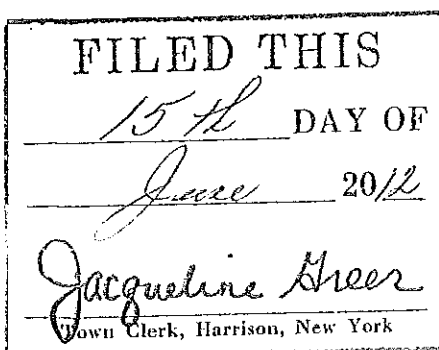 FILED THIS
15th DAY OF
June 2012
Jacqueline Greer
Town Clerk, Harrison, New York